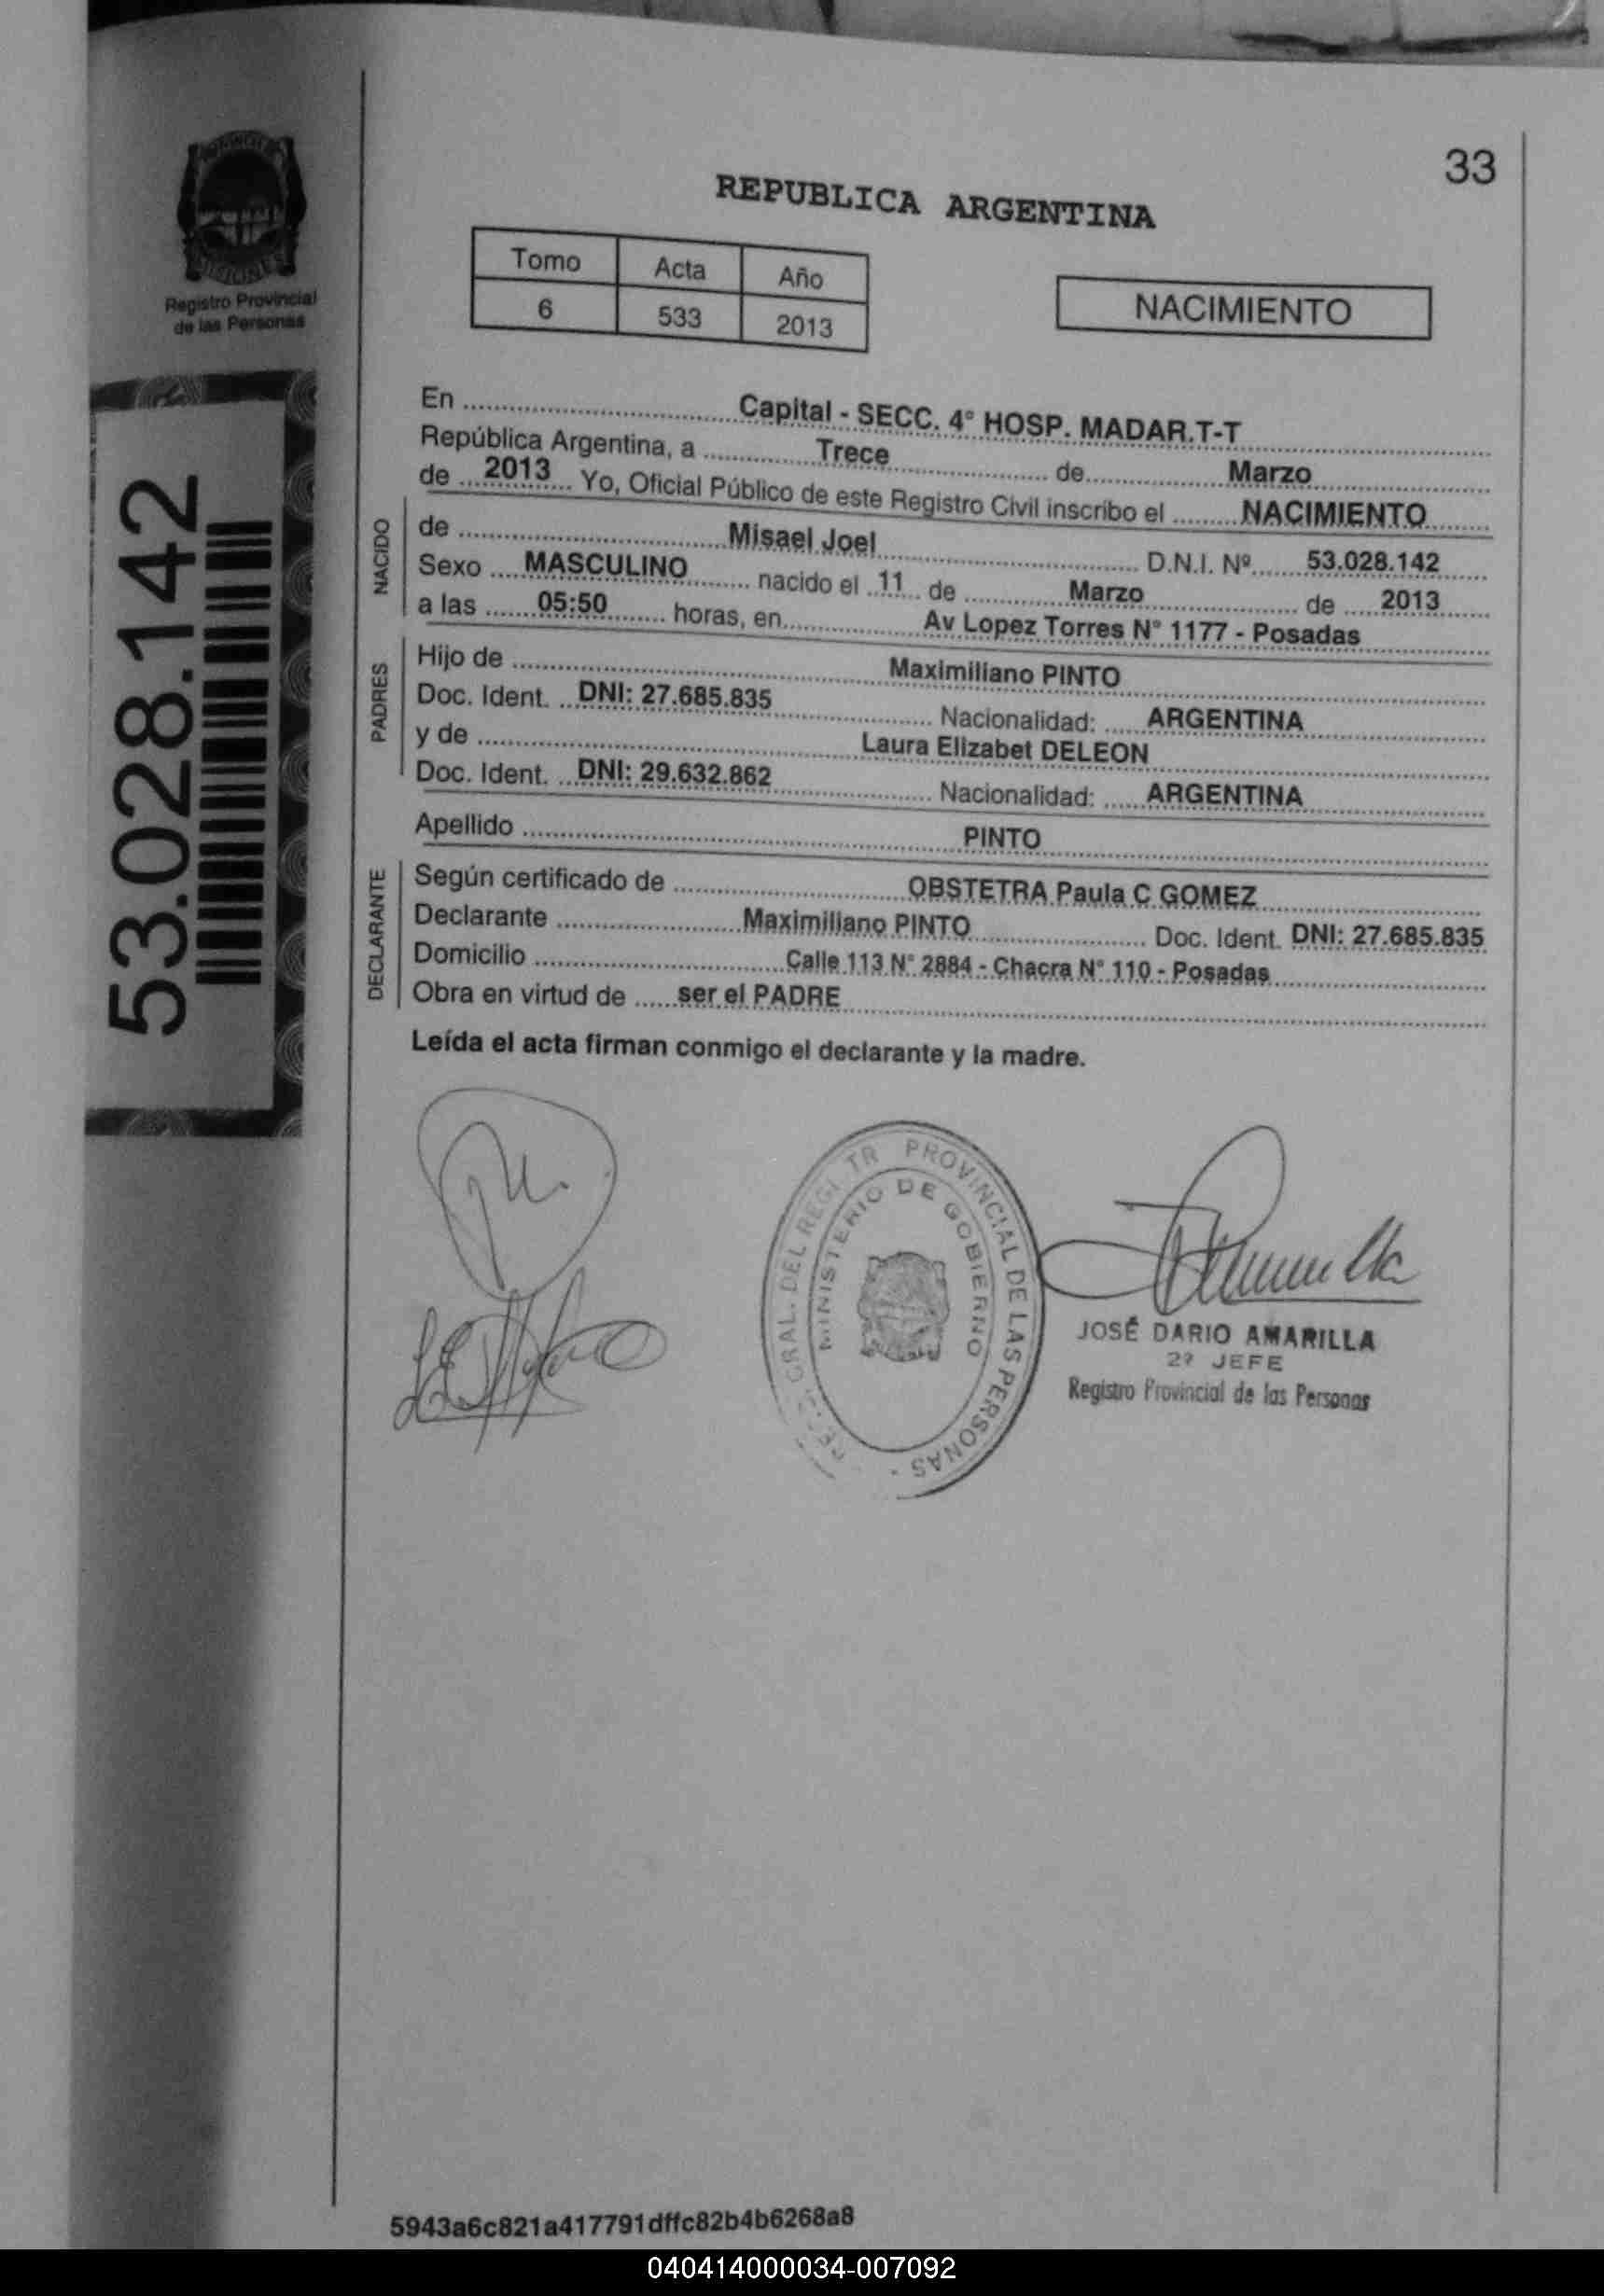 33
REPUBLICA ARGENTINA
Registro Provincial
de las Personas
Tomo Acta Año
6 533 2013
NACIMIENTO
53.028.142
En Capital - SECC. 4° HOSP. MADAR.T-T
República Argentina, a Trece de Marzo
de 2013 Yo, Oficial Público de este Registro Civil inscribo el NACIMIENTO
NACIDO
de Misael Joel D.N.I. Nº 53.028.142
Sexo MASCULINO nacido el 11 de Marzo de 2013
a las 05:50 horas, en Av Lopez Torres N° 1177 - Posadas
PADRES
Hijo de Maximiliano PINTO
Doc. Ident. DNI: 27.685.835 Nacionalidad: ARGENTINA
y de Laura Elizabet DELEON
Doc. Ident. DNI: 29.632.862 Nacionalidad: ARGENTINA
Apellido PINTO
DECLARANTE
Según certificado de OBSTETRA Paula C GOMEZ
Declarante Maximiliano PINTO Doc. Ident. DNI: 27.685.835
Domicilio Calle 113 N° 2884 - Chacra N° 110 - Posadas
Obra en virtud de ser el PADRE
Leída el acta firman conmigo el declarante y la madre.
GRAL. DEL REGI TR PROVINCIAL DE LAS PERSONAS
MINISTERIO DE GOBIERNO
JOSÉ DARIO AMARILLA
2º JEFE
Registro Provincial de las Personas
5943a6c821a417791dffc82b4b6268a8
040414000034-007092